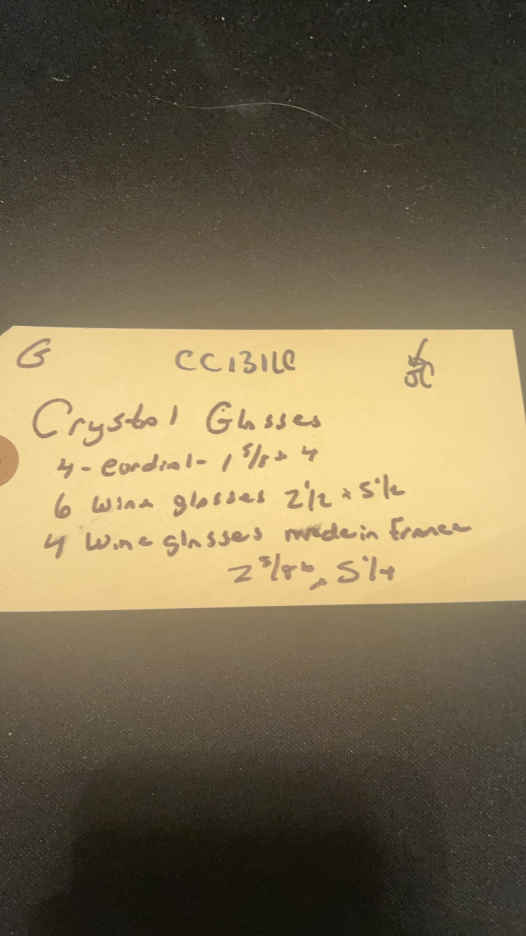 G CC131LC
Crystal Glasses
4 - Cordial - 1 5/8 x 4
6 Wine glasses 2 1/2 x 5 1/2
4 Wine glasses made in France
2 5/8 x 5 1/4